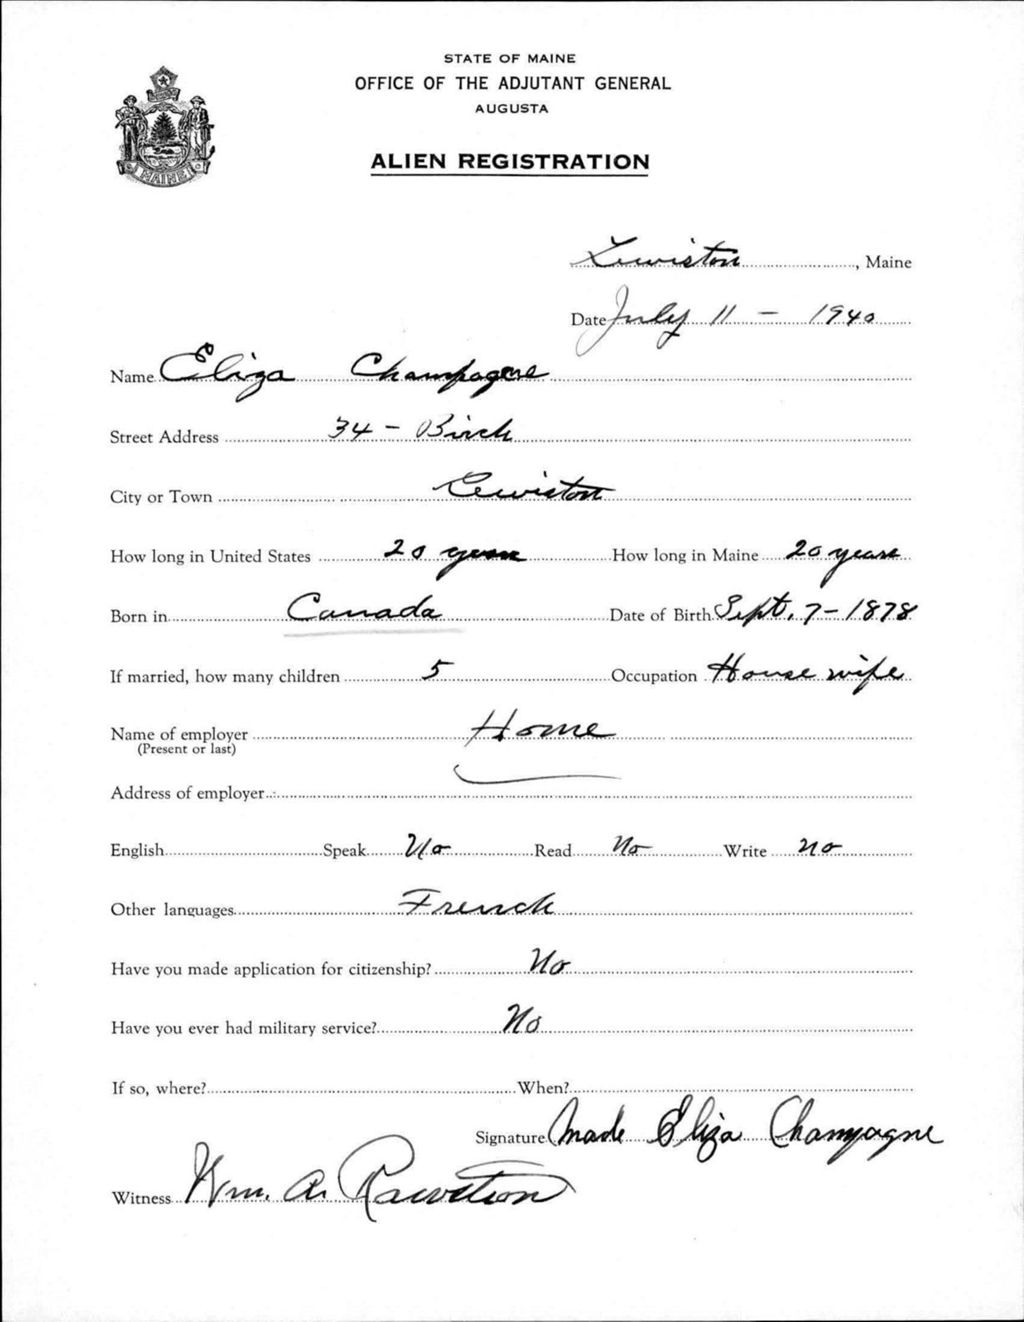 STATE OF MAINE
OFFICE OF THE ADJUTANT GENERAL
AUGUSTA
ALIEN REGISTRATION
MAINE
Lewiston, Maine
Date July 11 - 1940
Name Eliza Champagne
Street Address 34 - Birch
City or Town Lewiston
How long in United States 20 years How long in Maine 20 years
Born in Canada Date of Birth Sept. 7 - 1878
If married, how many children 5 Occupation House wife
Name of employer Home
(Present or last)
Address of employer
English Speak No Read No Write no
Other languages French
Have you made application for citizenship? No
Have you ever had military service? No
If so, where? When?
Signature Made Eliza Champagne
Witness Wm. A.